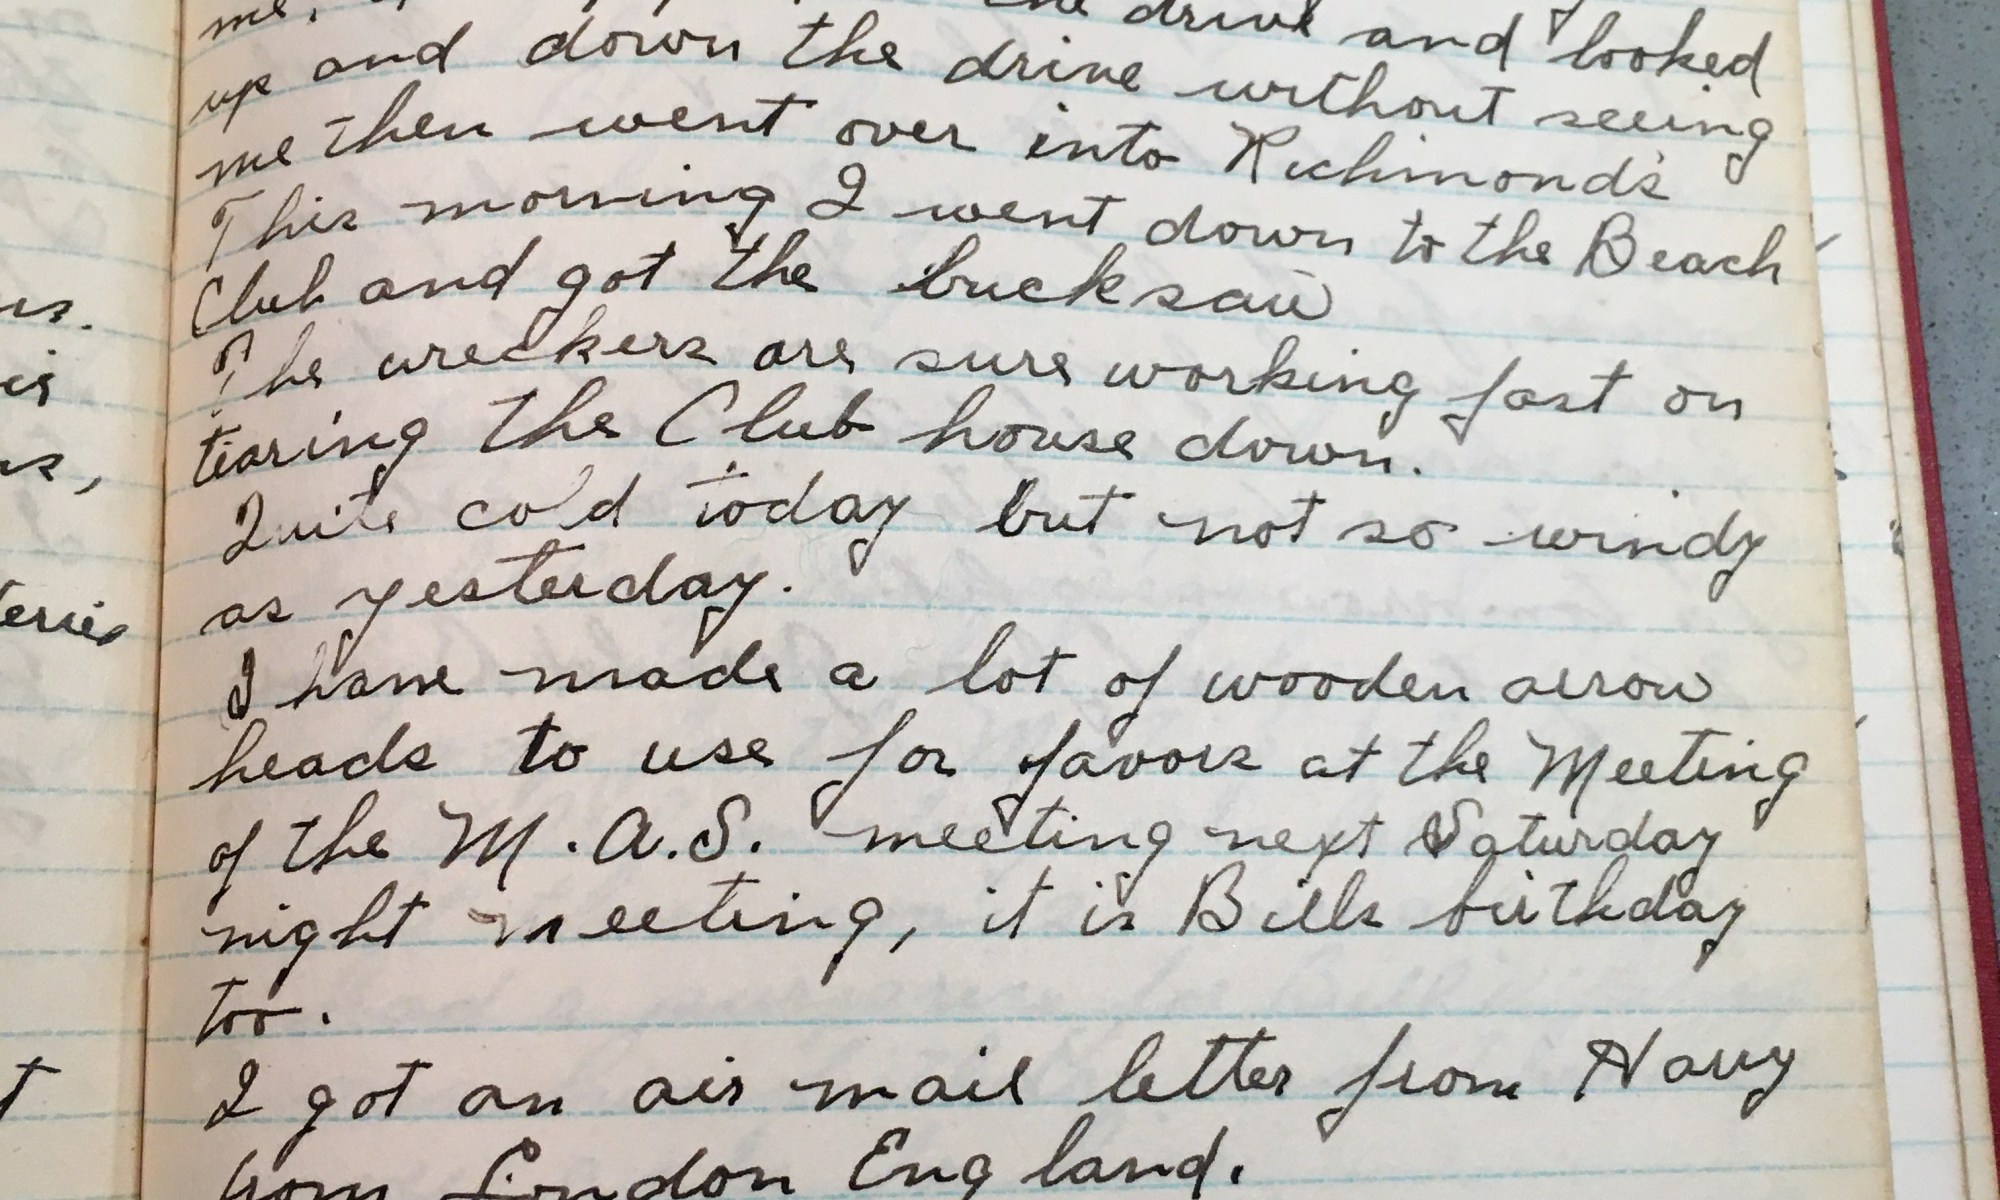 me,
the drive and looked
up and down the drive without seeing
me then went over into Richmond's
This morning I went down to the Beach
Club and got the bucksaw
The wreckers are sure working fast on
tearing the Club house down.
Quite cold today but not so windy
as yesterday.
I have made a lot of wooden arrow
heads to use for favors at the Meeting
of the M.A.S. meeting next Saturday
night meeting, it is Bills birthday
too.
I got an air mail letter from Harry
from London England.